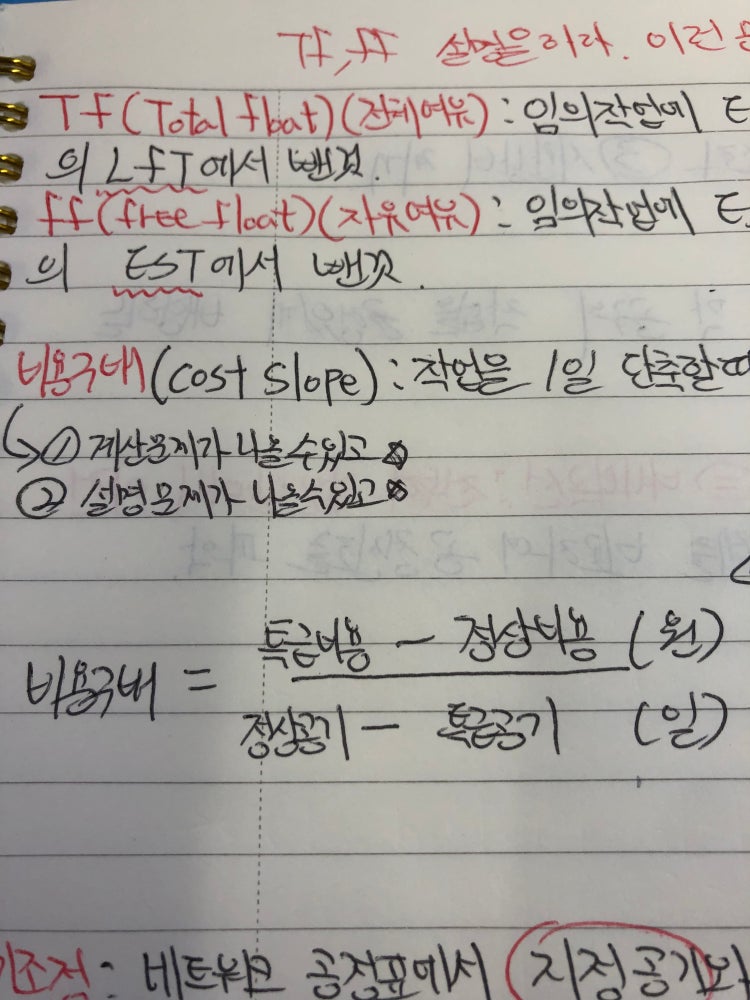 TF, FF 설명을하라. 이런
TF (Total float) (전체여유) : 임의작업에 E
의 LFT에서 뺀것.
FF (free float) (자유여유) : 임의작업에 E
의 EST에서 뺀것.
비용구배 (Cost Slope) : 작업을 1일 단축할때
↳ ① 계산문제가 나올수있고
② 설명문제가 나올수있고
특급비용 - 정상비용 (원)
비용구배 =
정상공기 - 특급공기 (일)
조정 : 네트워크 공정표에서 지정공기와